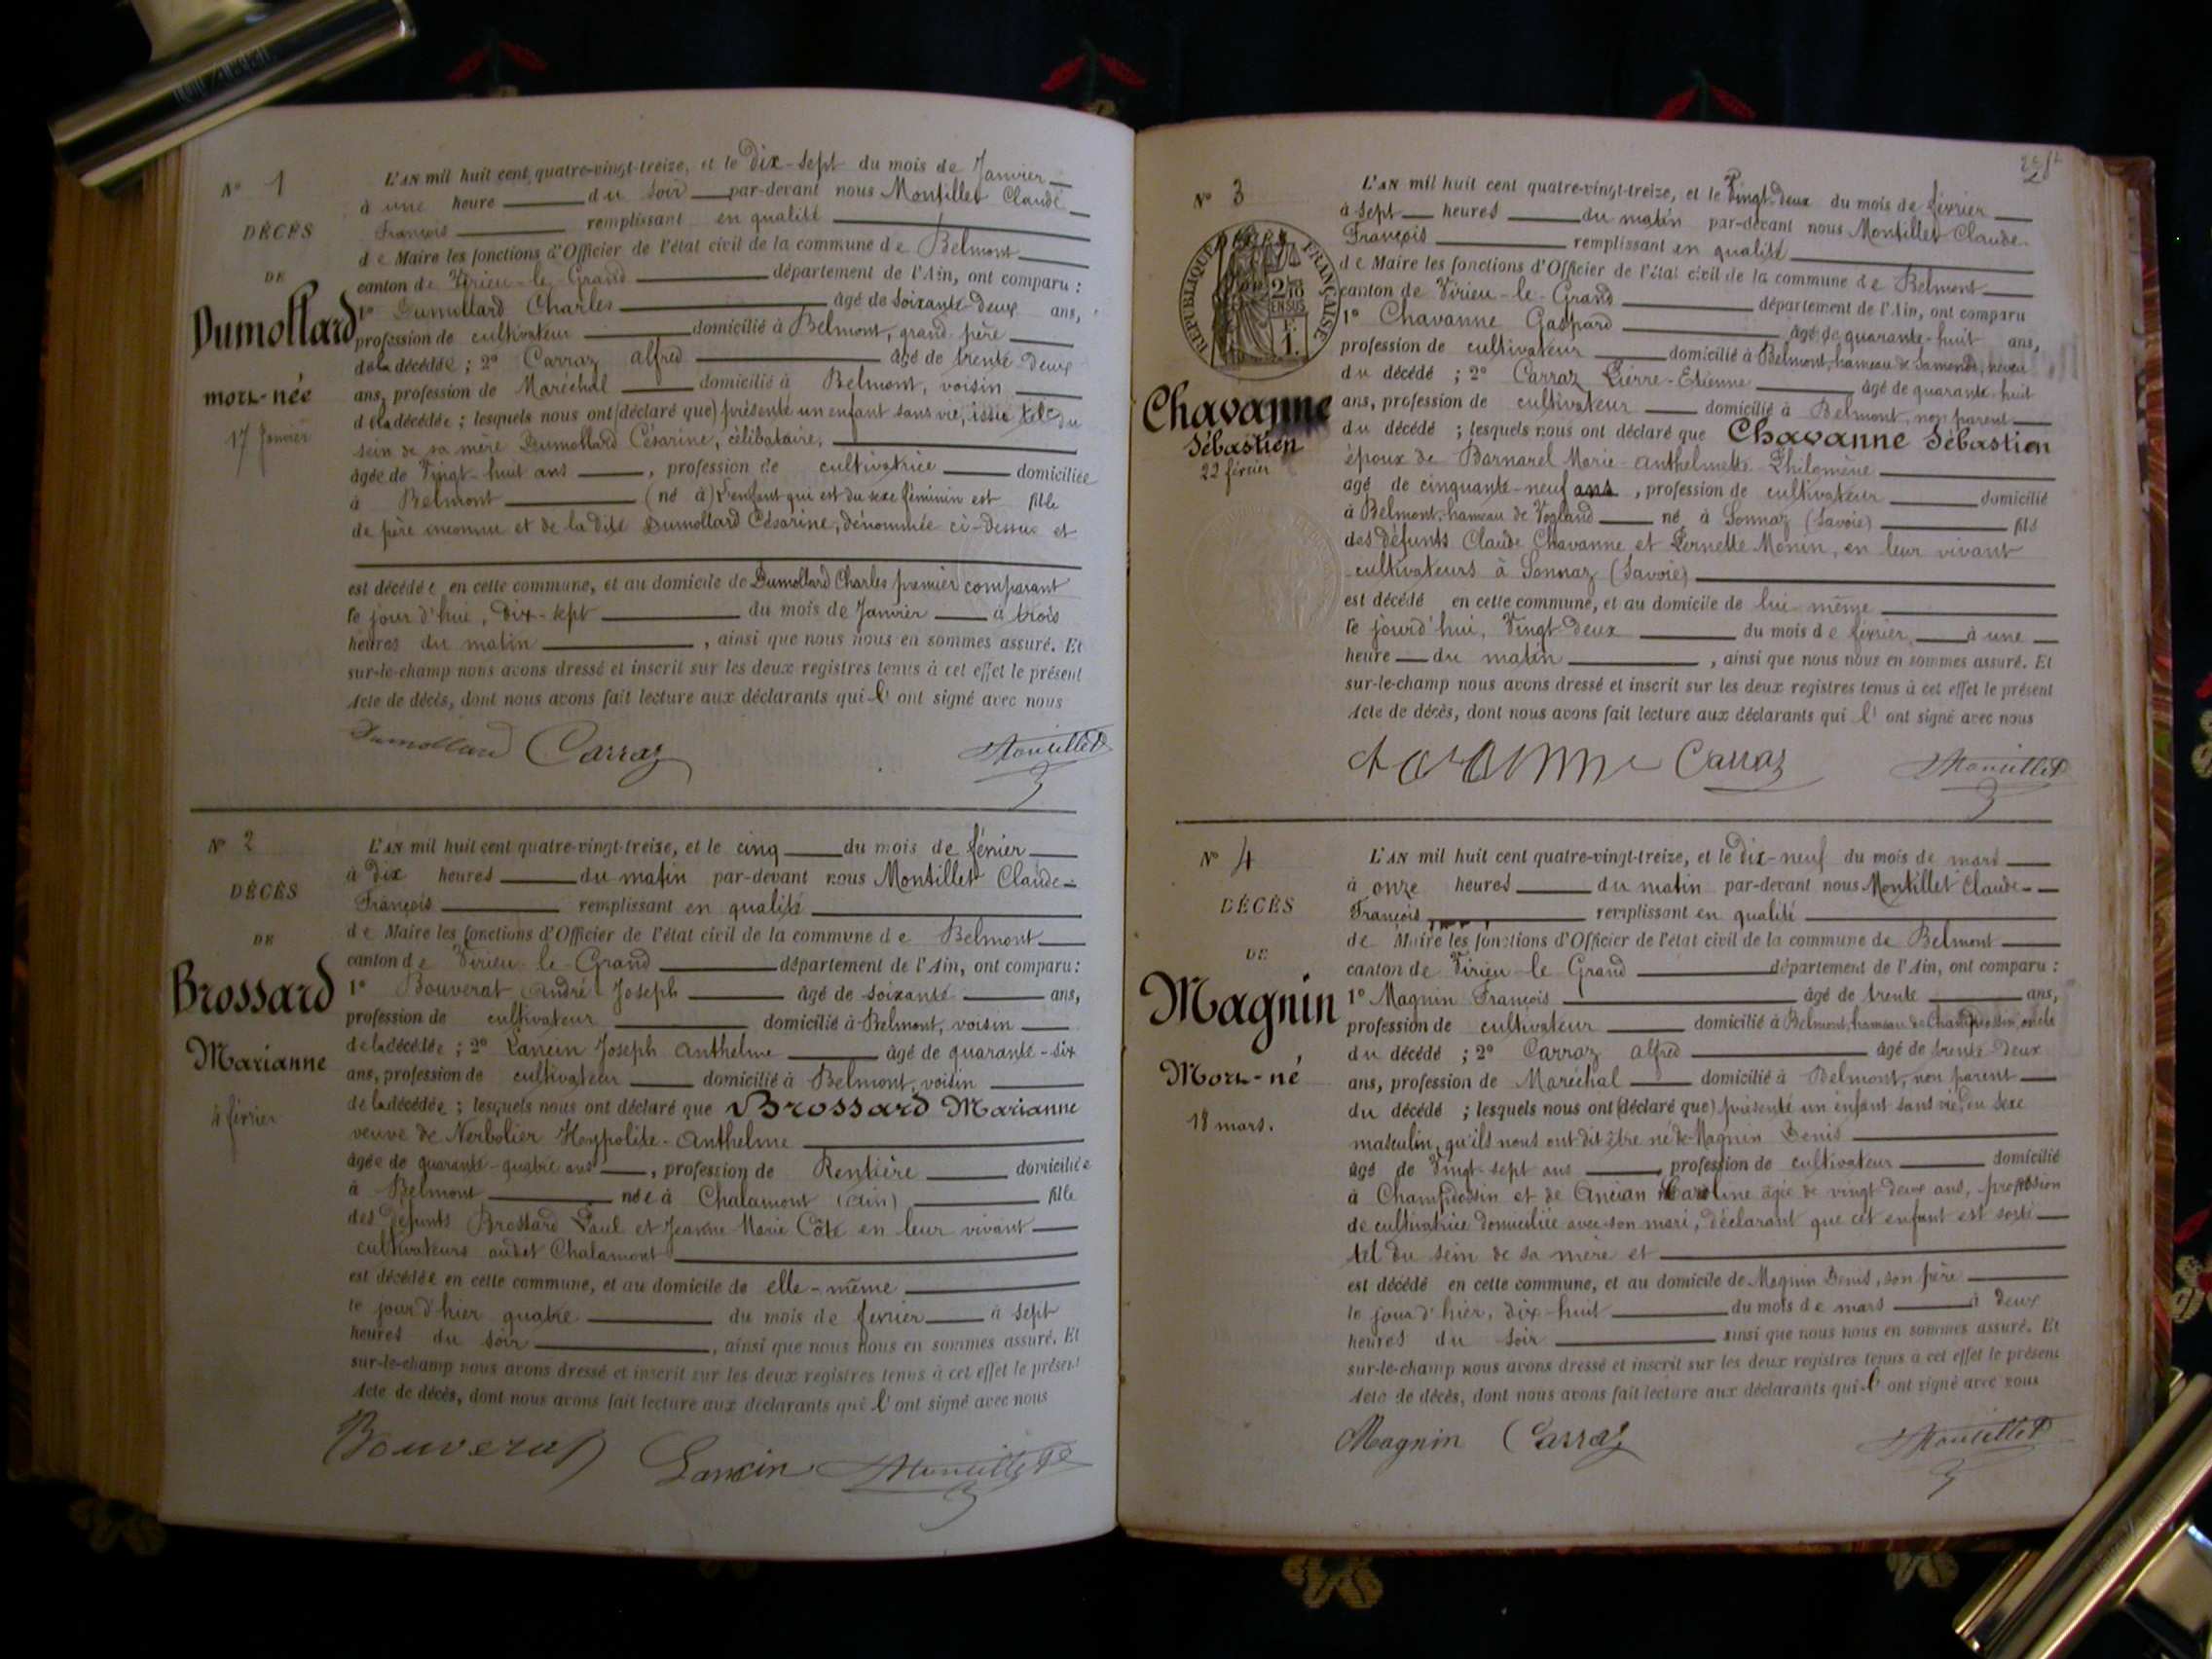 N° 1
DÉCÈS
DE
Dumollard
mort-née
17 Janvier
L'AN mil huit cent quatre-vingt-treize, et le Dix-sept du mois de Janvier
à une heure du soir par-devant nous Montillet Claude
François remplissant en qualité
de Maire les fonctions d'Officier de l'état civil de la commune de Belmont
canton de Virieu-le-Grand département de l'Ain, ont comparu :
1° Dumollard Charles âgé de soixante-deux ans,
profession de cultivateur domicilié à Belmont, grand-père
de la décédée ; 2° Carraz alfred âgé de trente-deux
ans, profession de Maréchal domicilié à Belmont, voisin
de la décédée ; lesquels nous ont (déclaré que) présenté un enfant sans vie, issu tel du
sein de sa mère Dumollard Césarine, célibataire,
âgée de Vingt-huit ans, profession de cultivatrice domiciliée
à Belmont (né à) L'enfant qui est du sexe féminin est fille
de père inconnu et de la dite Dumollard Césarine, dénommée ci-dessus et
est décédée en cette commune, et au domicile de Dumollard Charles premier comparant
le jour d'hui, Dix-sept du mois de Janvier à trois
heures du matin, ainsi que nous nous en sommes assuré. Et
sur-le-champ nous avons dressé et inscrit sur les deux registres tenus à cet effet le présent
Acte de décès, dont nous avons fait lecture aux déclarants qui l'ont signé avec nous
Dumollard Carraz Montillet
N° 2
DÉCÈS
DE
Brossard
Marianne
4 février
L'AN mil huit cent quatre-vingt-treize, et le cinq du mois de février
à Dix heures du matin par-devant nous Montillet Claude-
François remplissant en qualité
de Maire les fonctions d'Officier de l'état civil de la commune de Belmont
canton de Virieu-le-Grand département de l'Ain, ont comparu :
1° Bouverat André Joseph âgé de soixante ans,
profession de cultivateur domicilié à Belmont, voisin
de la décédée ; 2° Lancin Joseph Anthelme âgé de quarante-six
ans, profession de cultivateur domicilié à Belmont, voisin
de la décédée ; lesquels nous ont déclaré que Brossard Marianne
veuve de Nerbolier Hyppolite-Anthelme
âgée de quarante-quatre ans, profession de Rentière domiciliée
à Belmont née à Chalamont (Ain) fille
des défunts Brossard Paul et Jeanne Marie Côte en leur vivant
cultivateurs audit Chalamont
est décédée en cette commune, et au domicile de elle-même
le jour d'hier quatre du mois de février à sept
heures du soir, ainsi que nous nous en sommes assuré. Et
sur-le-champ nous avons dressé et inscrit sur les deux registres tenus à cet effet le présent
Acte de décès, dont nous avons fait lecture aux déclarants qui l'ont signé avec nous
Bouverat Lancin Montillet
N° 3
RÉPUBLIQUE FRANÇAISE
2/10 EN SUS
1 F.
Chavanne
Sébastien
22 février
L'AN mil huit cent quatre-vingt-treize, et le Vingt-deux du mois de février
à sept heures du matin par-devant nous Montillet Claude-
François remplissant en qualité
de Maire les fonctions d'Officier de l'état civil de la commune de Belmont
canton de Virieu-le-Grand département de l'Ain, ont comparu
1° Chavanne Gaspard âgé de quarante-huit ans,
profession de cultivateur domicilié à Belmont, hameau de Samonod, neveu
du décédé ; 2° Carraz Pierre-Etienne âgé de quarante-huit
ans, profession de cultivateur domicilié à Belmont, non parent
du décédé ; lesquels nous ont déclaré que Chavanne Sébastien
époux de Barnarel Marie-Anthelmette Philomène
âgé de cinquante-neuf ans, profession de cultivateur domicilié
à Belmont, hameau de Vogland né à Sonnaz (Savoie) fils
des défunts Claude Chavanne et Pernette Monin, en leur vivant
cultivateurs à Sonnaz (Savoie)
est décédé en cette commune, et au domicile de lui-même
le jourd'hui, Vingt-deux du mois de février à une
heure du matin, ainsi que nous nous en sommes assuré. Et
sur-le-champ nous avons dressé et inscrit sur les deux registres tenus à cet effet le présent
Acte de décès, dont nous avons fait lecture aux déclarants qui l'ont signé avec nous
Chavanne Carraz Montillet
N° 4
DÉCÈS
DE
Magnin
Mort-né
18 mars.
L'AN mil huit cent quatre-vingt-treize, et le Dix-neuf du mois de mars
à onze heures du matin par-devant nous Montillet Claude-
François remplissant en qualité
de Maire les fonctions d'Officier de l'état civil de la commune de Belmont
canton de Virieu-le-Grand département de l'Ain, ont comparu :
1° Magnin François âgé de trente ans,
profession de cultivateur domicilié à Belmont, hameau de Champdossin, oncle
du décédé ; 2° Carraz alfred âgé de trente-deux
ans, profession de Maréchal domicilié à Belmont, non parent
du décédé ; lesquels nous ont (déclaré que) présenté un enfant sans vie, du sexe
masculin, qu'ils nous ont dit être né de Magnin Denis
âgé de Vingt-sept ans, profession de cultivateur domicilié
à Champdossin et de Ancian Caroline âgée de vingt-deux ans, profession
de cultivatrice domiciliée avec son mari, déclarant que cet enfant est sorti
tel du sein de sa mère et
est décédé en cette commune, et au domicile de Magnin Denis, son père
le jour d'hier, dix-huit du mois de mars à deux
heures du soir ainsi que nous nous en sommes assuré. Et
sur-le-champ nous avons dressé et inscrit sur les deux registres tenus à cet effet le présent
Acte de décès, dont nous avons fait lecture aux déclarants qui l'ont signé avec nous
Magnin Carraz Montillet